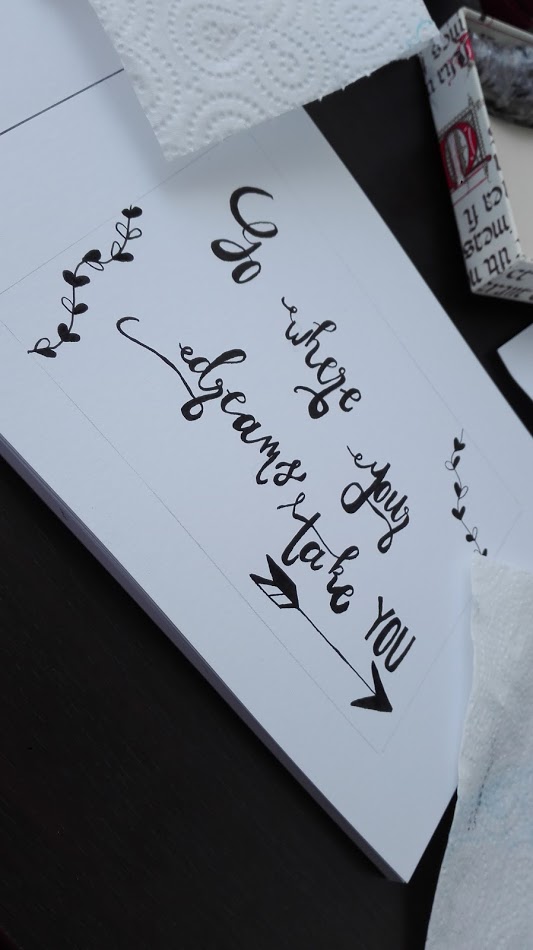 Go where your
dreams take YOU